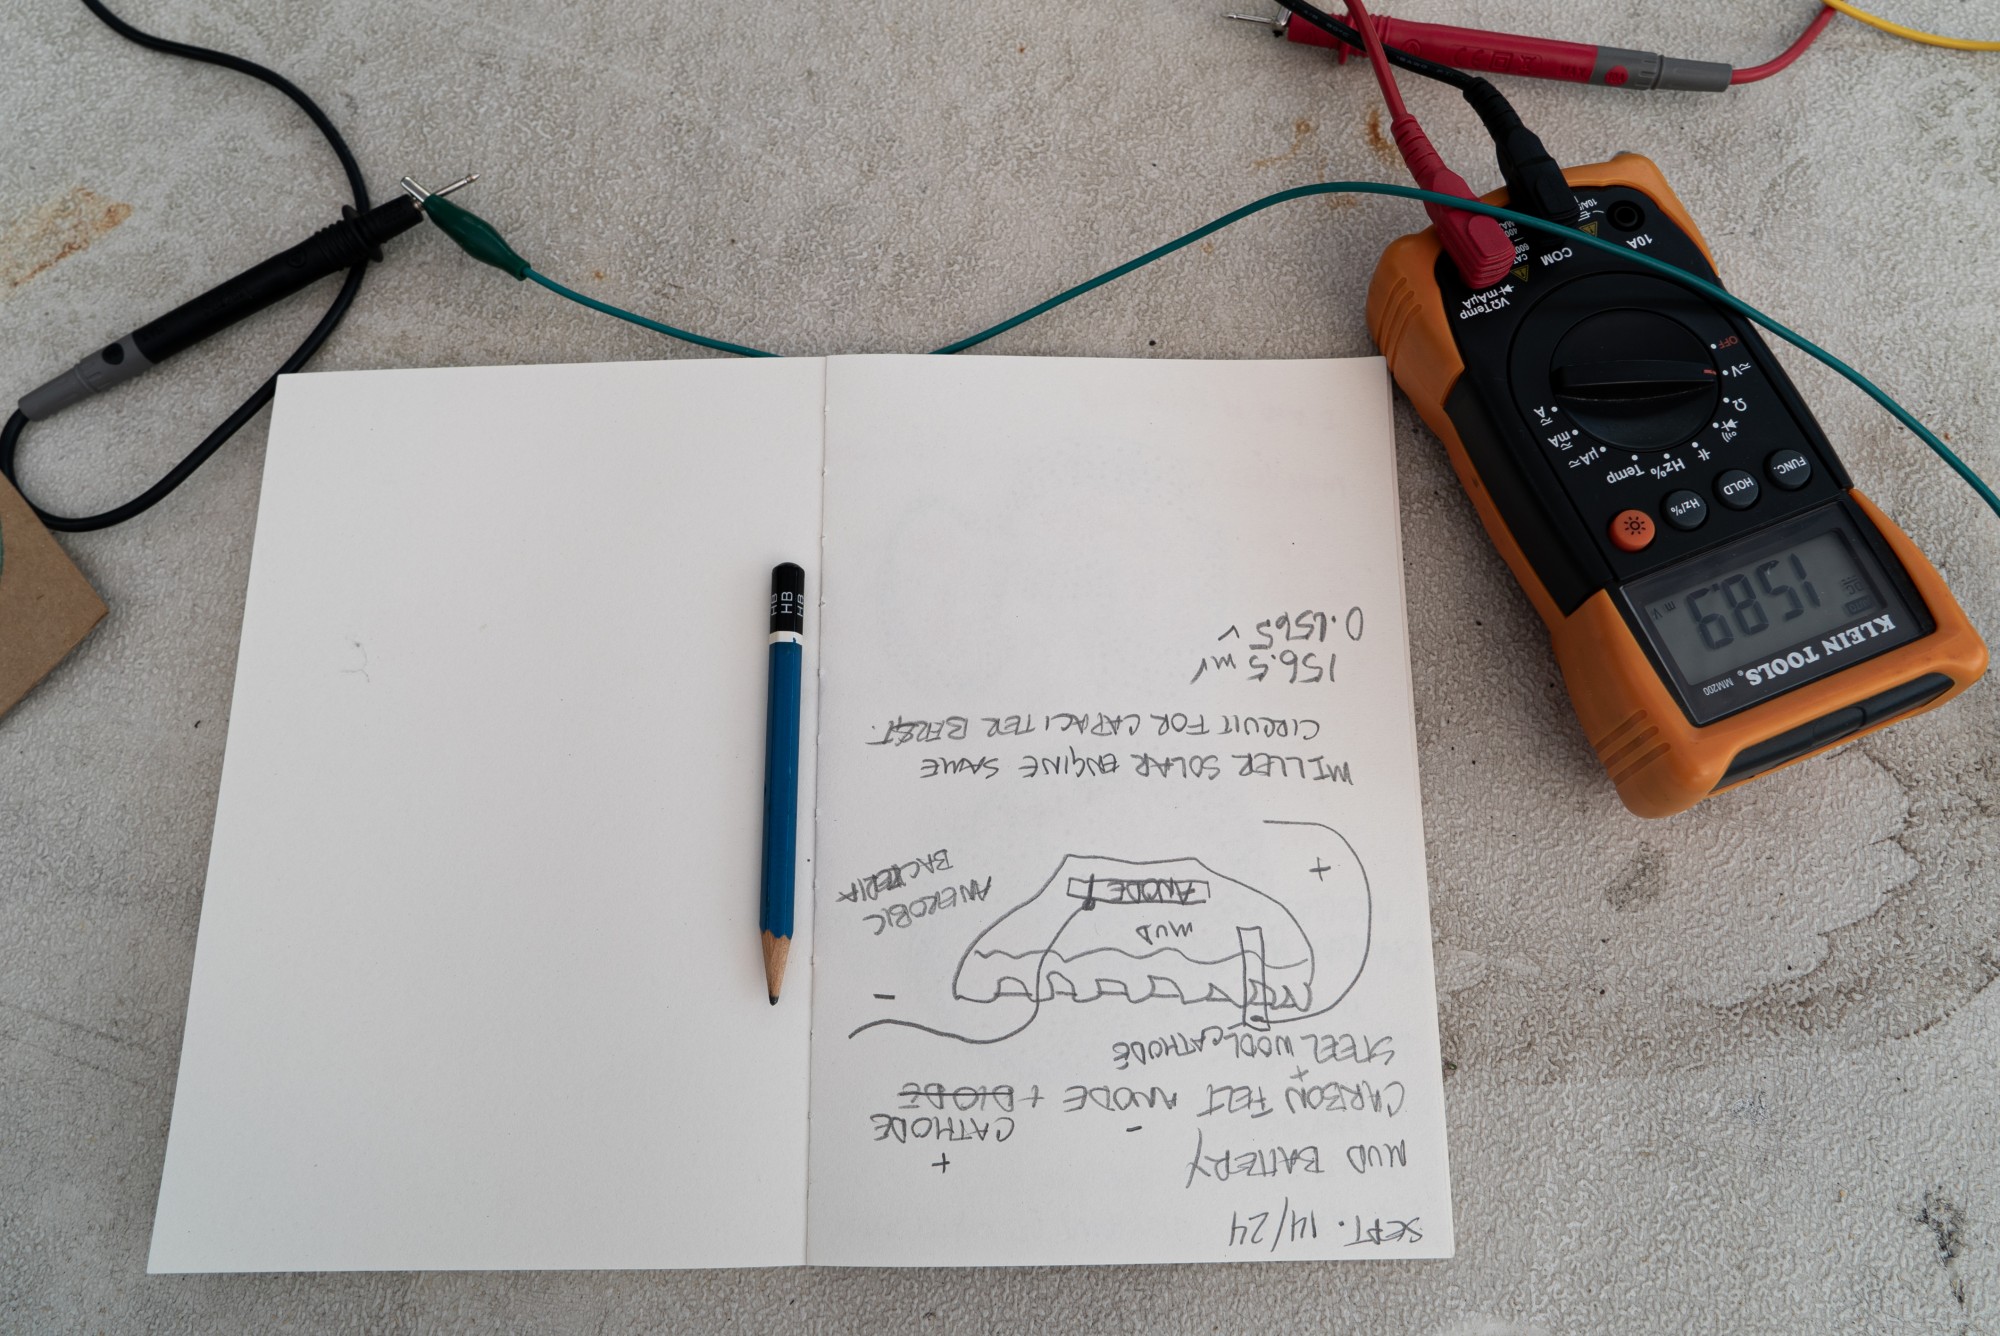 SEPT. 14/24
MUD BATTERY
+
CATHODE
-
CARBON FELT ANODE + DIODE
+
STEEL WOOL CATHODE
-
+
MUD
ANODE
ANEROBIC
BACTERIA
MILLER SOLAR ENGINE SAME
CIRCUIT FOR CAPACITER
156.5 mV
0.1565 V
HB HB HB
KLEIN TOOLS®
MM200
AUTO
DC
158.9
mV
FUNC.
HOLD
Hz/%
OFF
V
Ω
Hz%
Temp
µA
mA
A
10A
COM
VΩTemp
mAµA